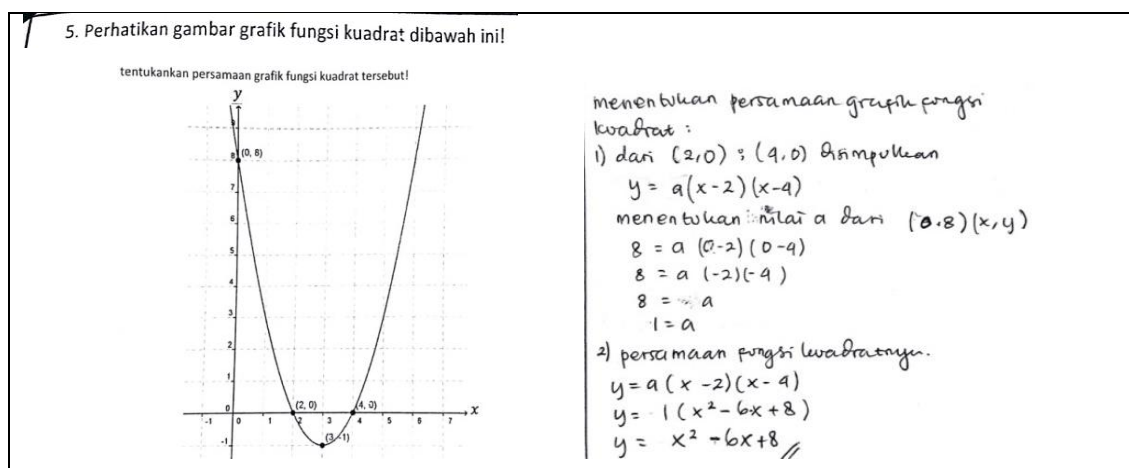 5. Perhatikan gambar grafik fungsi kuadrat dibawah ini!
tentukankan persamaan grafik fungsi kuadrat tersebut!
y
9
8
(0, 8)
7
6
5
4
3
2
1
0
(2, 0)
(4, 0)
x
-1
0
1
2
3
4
5
6
7
(3, -1)
-1
menentukan persamaan grafik fungsi
kuadrat :
1) dari (2,0) ; (4,0) disimpulkan
y = a(x-2)(x-4)
menentukan nilai a dari (0.8)(x,y)
8 = a (0-2)(0-4)
8 = a (-2)(-4)
8 = a
1 = a
2) persamaan fungsi kuadratnya.
y = a(x-2)(x-4)
y = 1(x²-6x+8)
y = x²-6x+8